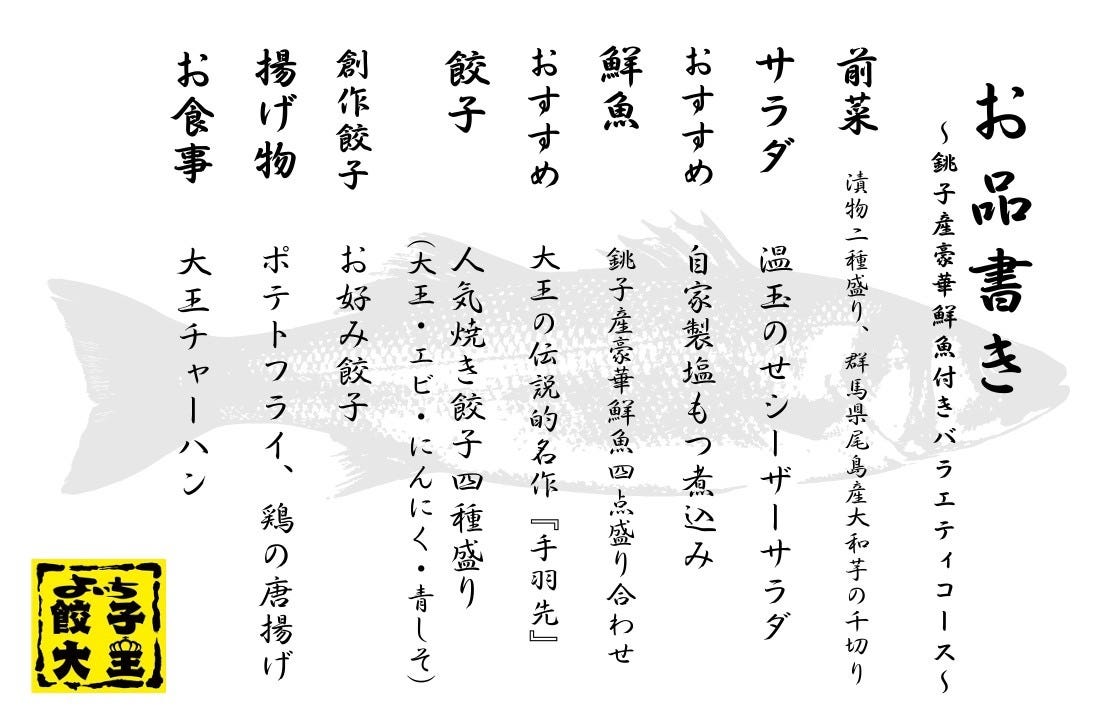 お品書き
～銚子産豪華鮮魚付きバラエティコース～
前菜 漬物二種盛り、群馬県尾島産大和芋の千切り
サラダ 温玉のせシーザーサラダ
おすすめ 自家製塩もつ煮込み
鮮魚 銚子産豪華鮮魚四点盛り合わせ
おすすめ 大王の伝説的名作『手羽先』
餃子 人気焼き餃子四種盛り
（大王・エビ・にんにく・青しそ）
創作餃子 お好み餃子
揚げ物 ポテトフライ、鶏の唐揚げ
お食事 大王チャーハン
よいち
餃子
大王